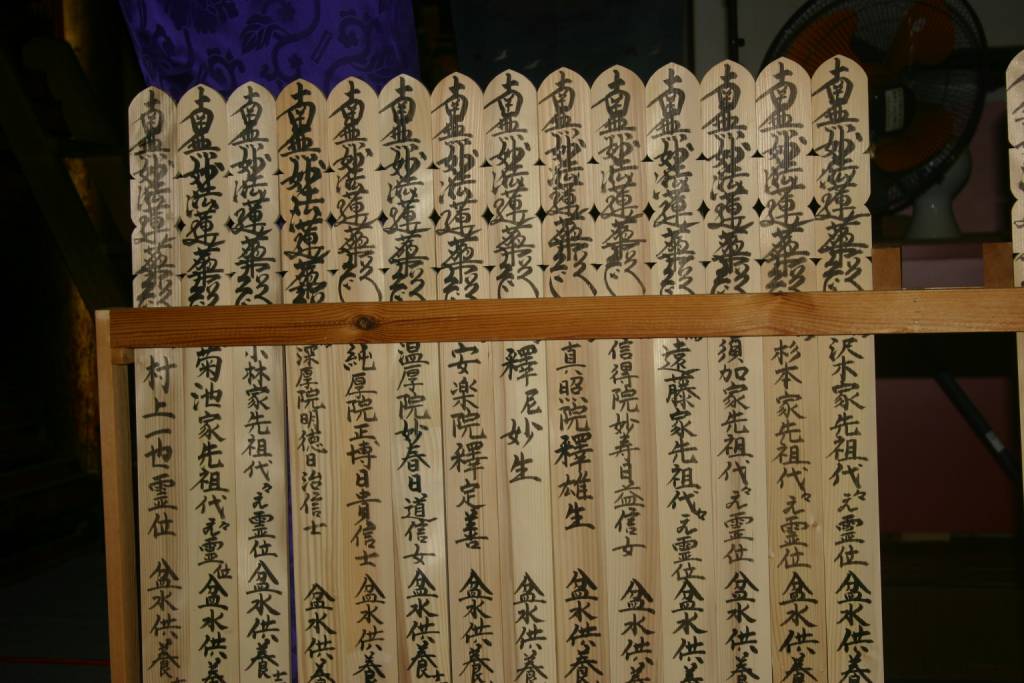 南無妙法蓮華経 沢木家先祖代々之霊位 盆水供養
南無妙法蓮華経 杉本家先祖代々之霊位 盆水供養
南無妙法蓮華経 須加家先祖代々之霊位 盆水供養
南無妙法蓮華経 遠藤家先祖代々之霊位 盆水供養
南無妙法蓮華経 信得院妙寿日益信女 盆水供養
南無妙法蓮華経 真照院釋雄生 盆水供養
南無妙法蓮華経 釋尼妙生 盆水供養
南無妙法蓮華経 安楽院釋定善 盆水供養
南無妙法蓮華経 温厚院妙春日道信女 盆水供養
南無妙法蓮華経 純厚院正博日貴信士 盆水供養
南無妙法蓮華経 深厚院明徳日治信士 盆水供養
南無妙法蓮華経 小林家先祖代々之霊位 盆水供養
南無妙法蓮華経 菊池家先祖代々之霊位 盆水供養
南無妙法蓮華経 村上一也霊位 盆水供養